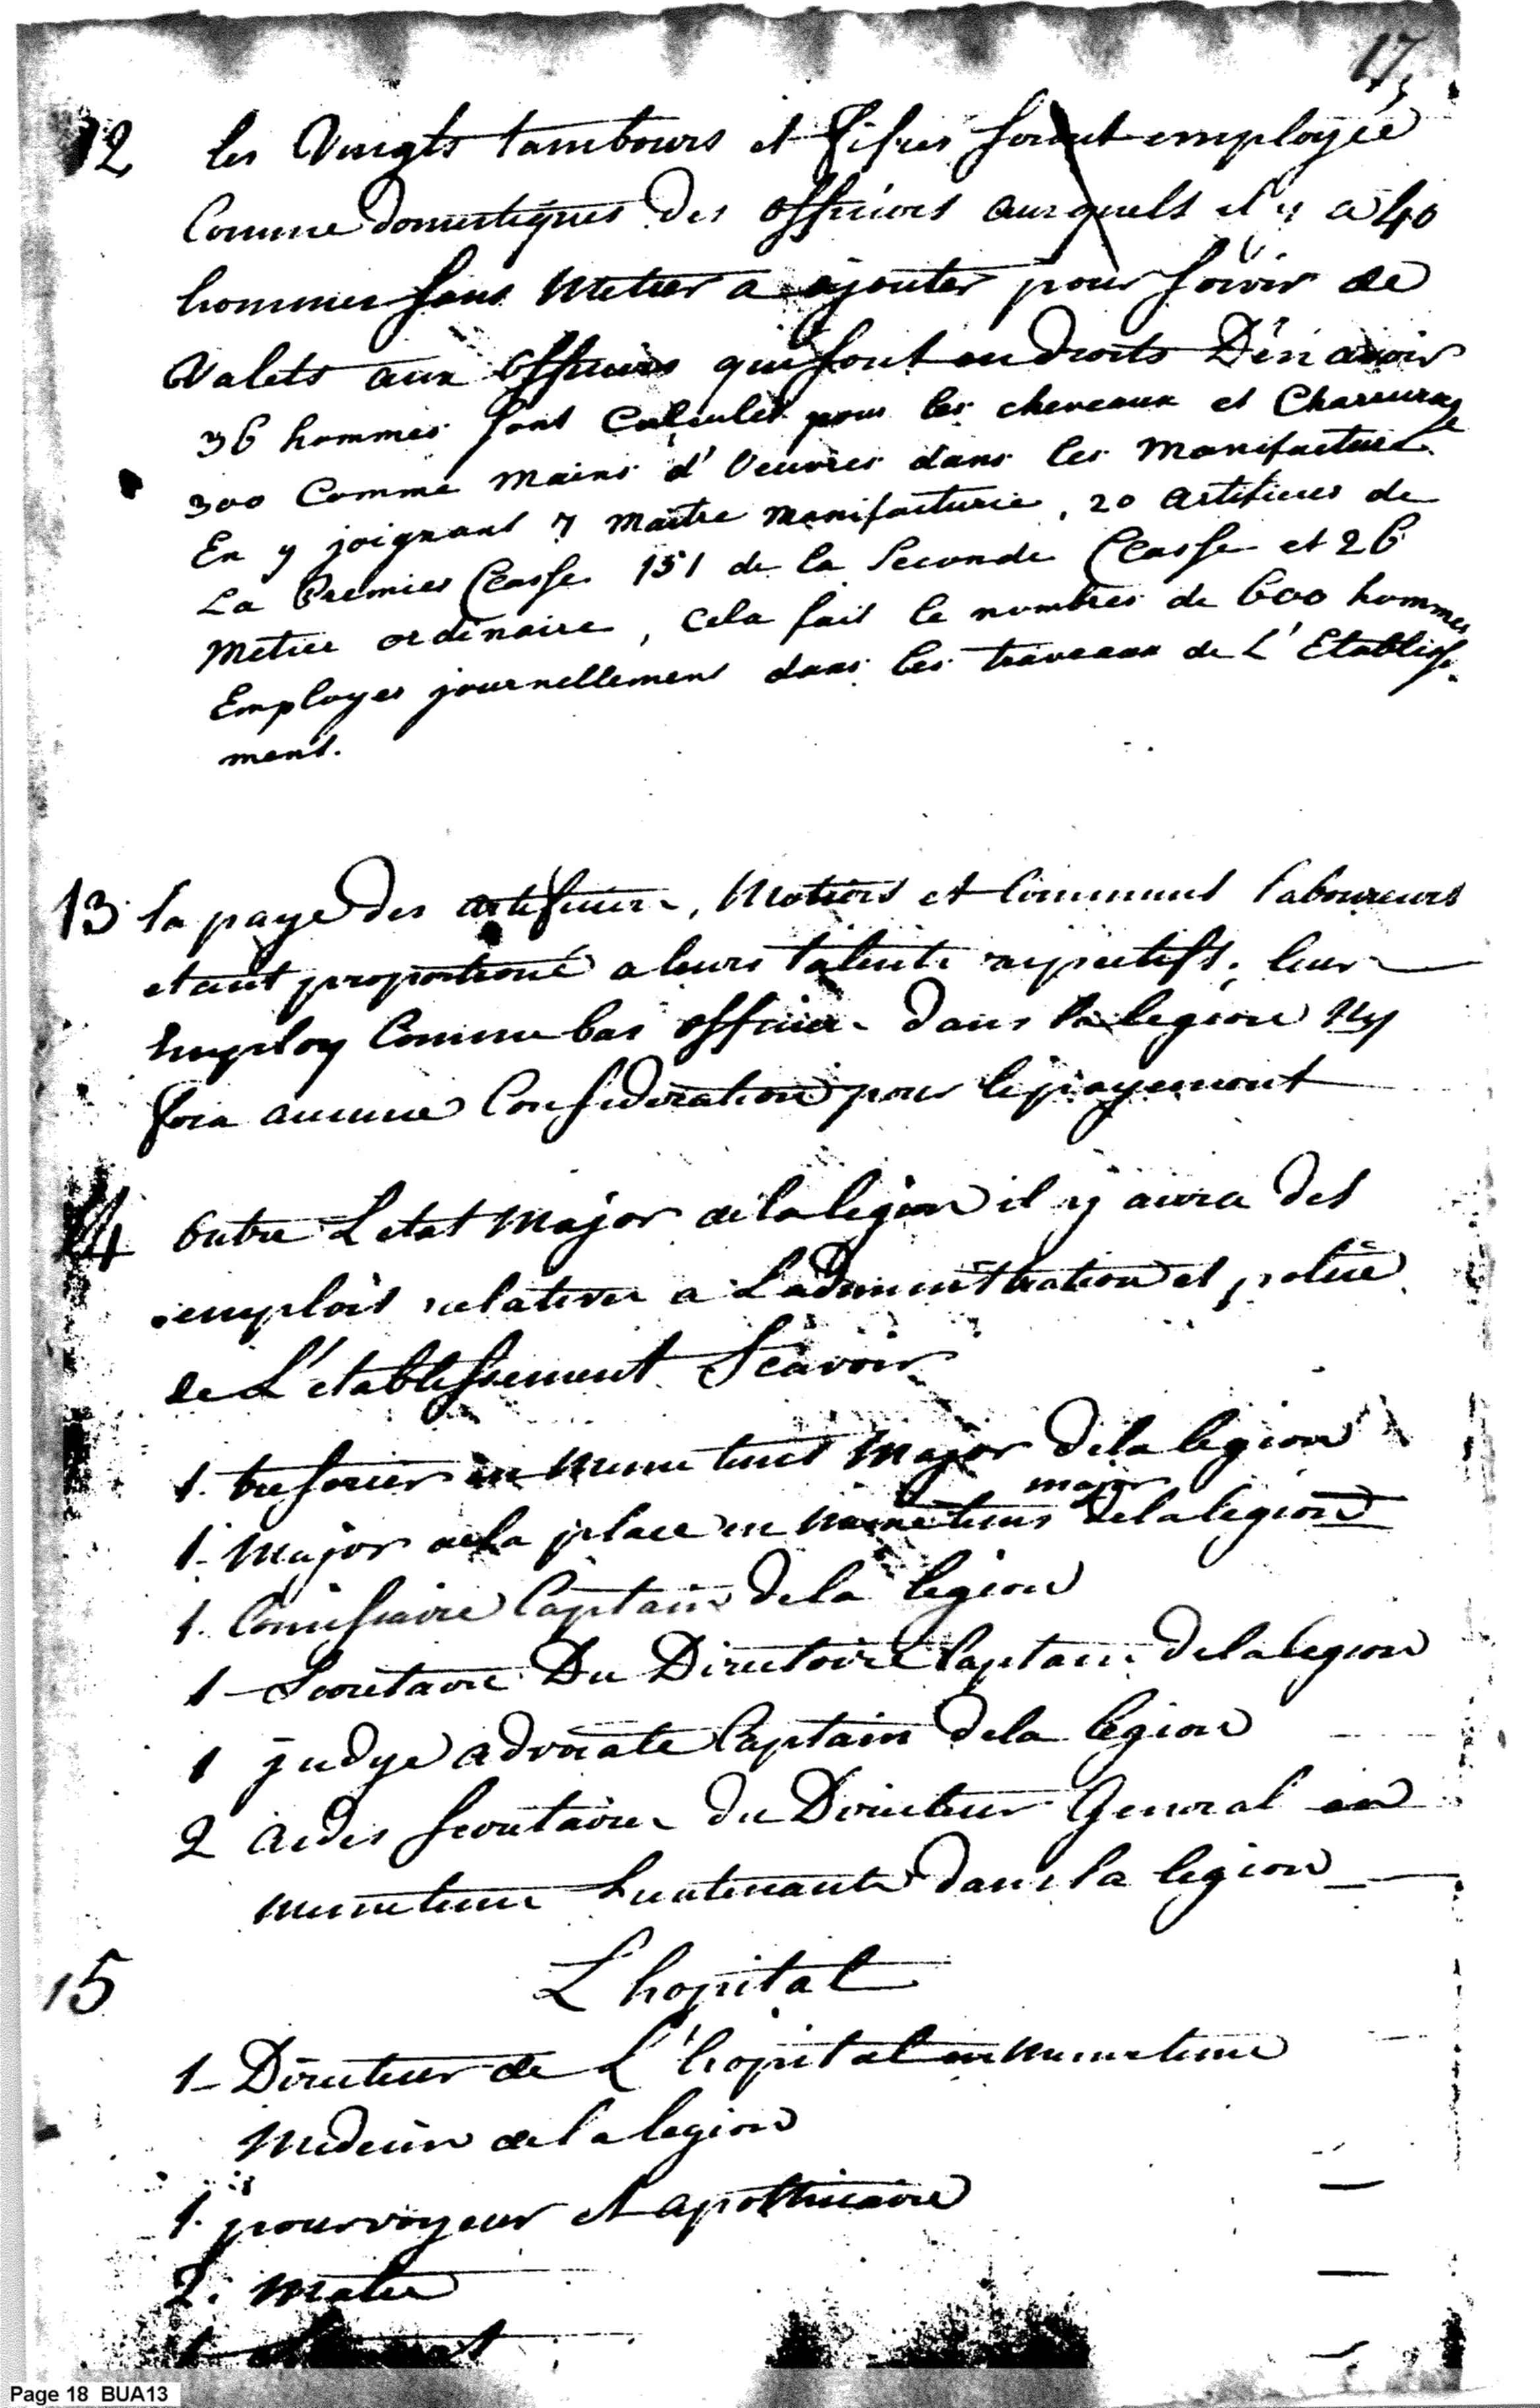 17,
12 les Vingts tambours et fifres seront employée
Comme domestiques des officiers auxquels il y a 40
hommes sans Metier a ajouter pour servir de
Valets aux officiers qui sont en droits D'en avoir
36 hommes sont Calculés pour les cheveaux et Chareurage
300 Comme mains d'Oeuvres dans les manifactures
En y joignant 7 maitre manifacturie, 20 artificers de
La Premier Classe 151 de la Seconde Classe et 26
Metier ordinaire, cela fait le nombres de 600 hommes
Employes journellement dans les traveaux de L'Etablisse-
ment.
13 la paye des artificiers, Metiers et Communs laboureurs
etant proportioné a leurs talents respectifs, leur
Employ Comme bas officier dans la legion n'y
sera aucune Consideration pour le payement
14 Outre L etat Major de la legion il y aura des
emplois relatives a Ladministration et police
de L'etablissement Scavoir
1. tresorier en meme tems Major de la legion
major
1. Major de la place en meme tems de la legion
1. Comissaire Captain de la legion
1 Secretaire Du Directoire Captain de la legion
1 judge advocate Captain de la legion
2 aides secretaires du Directeur General en
meme tems Lieutenants dans la legion
15 L hopital
1 Directeur de L'hopital en meme tems
Medecin de la legion
1. pourvoyeur et apothicaire
2. mates
Page 18 BUA13